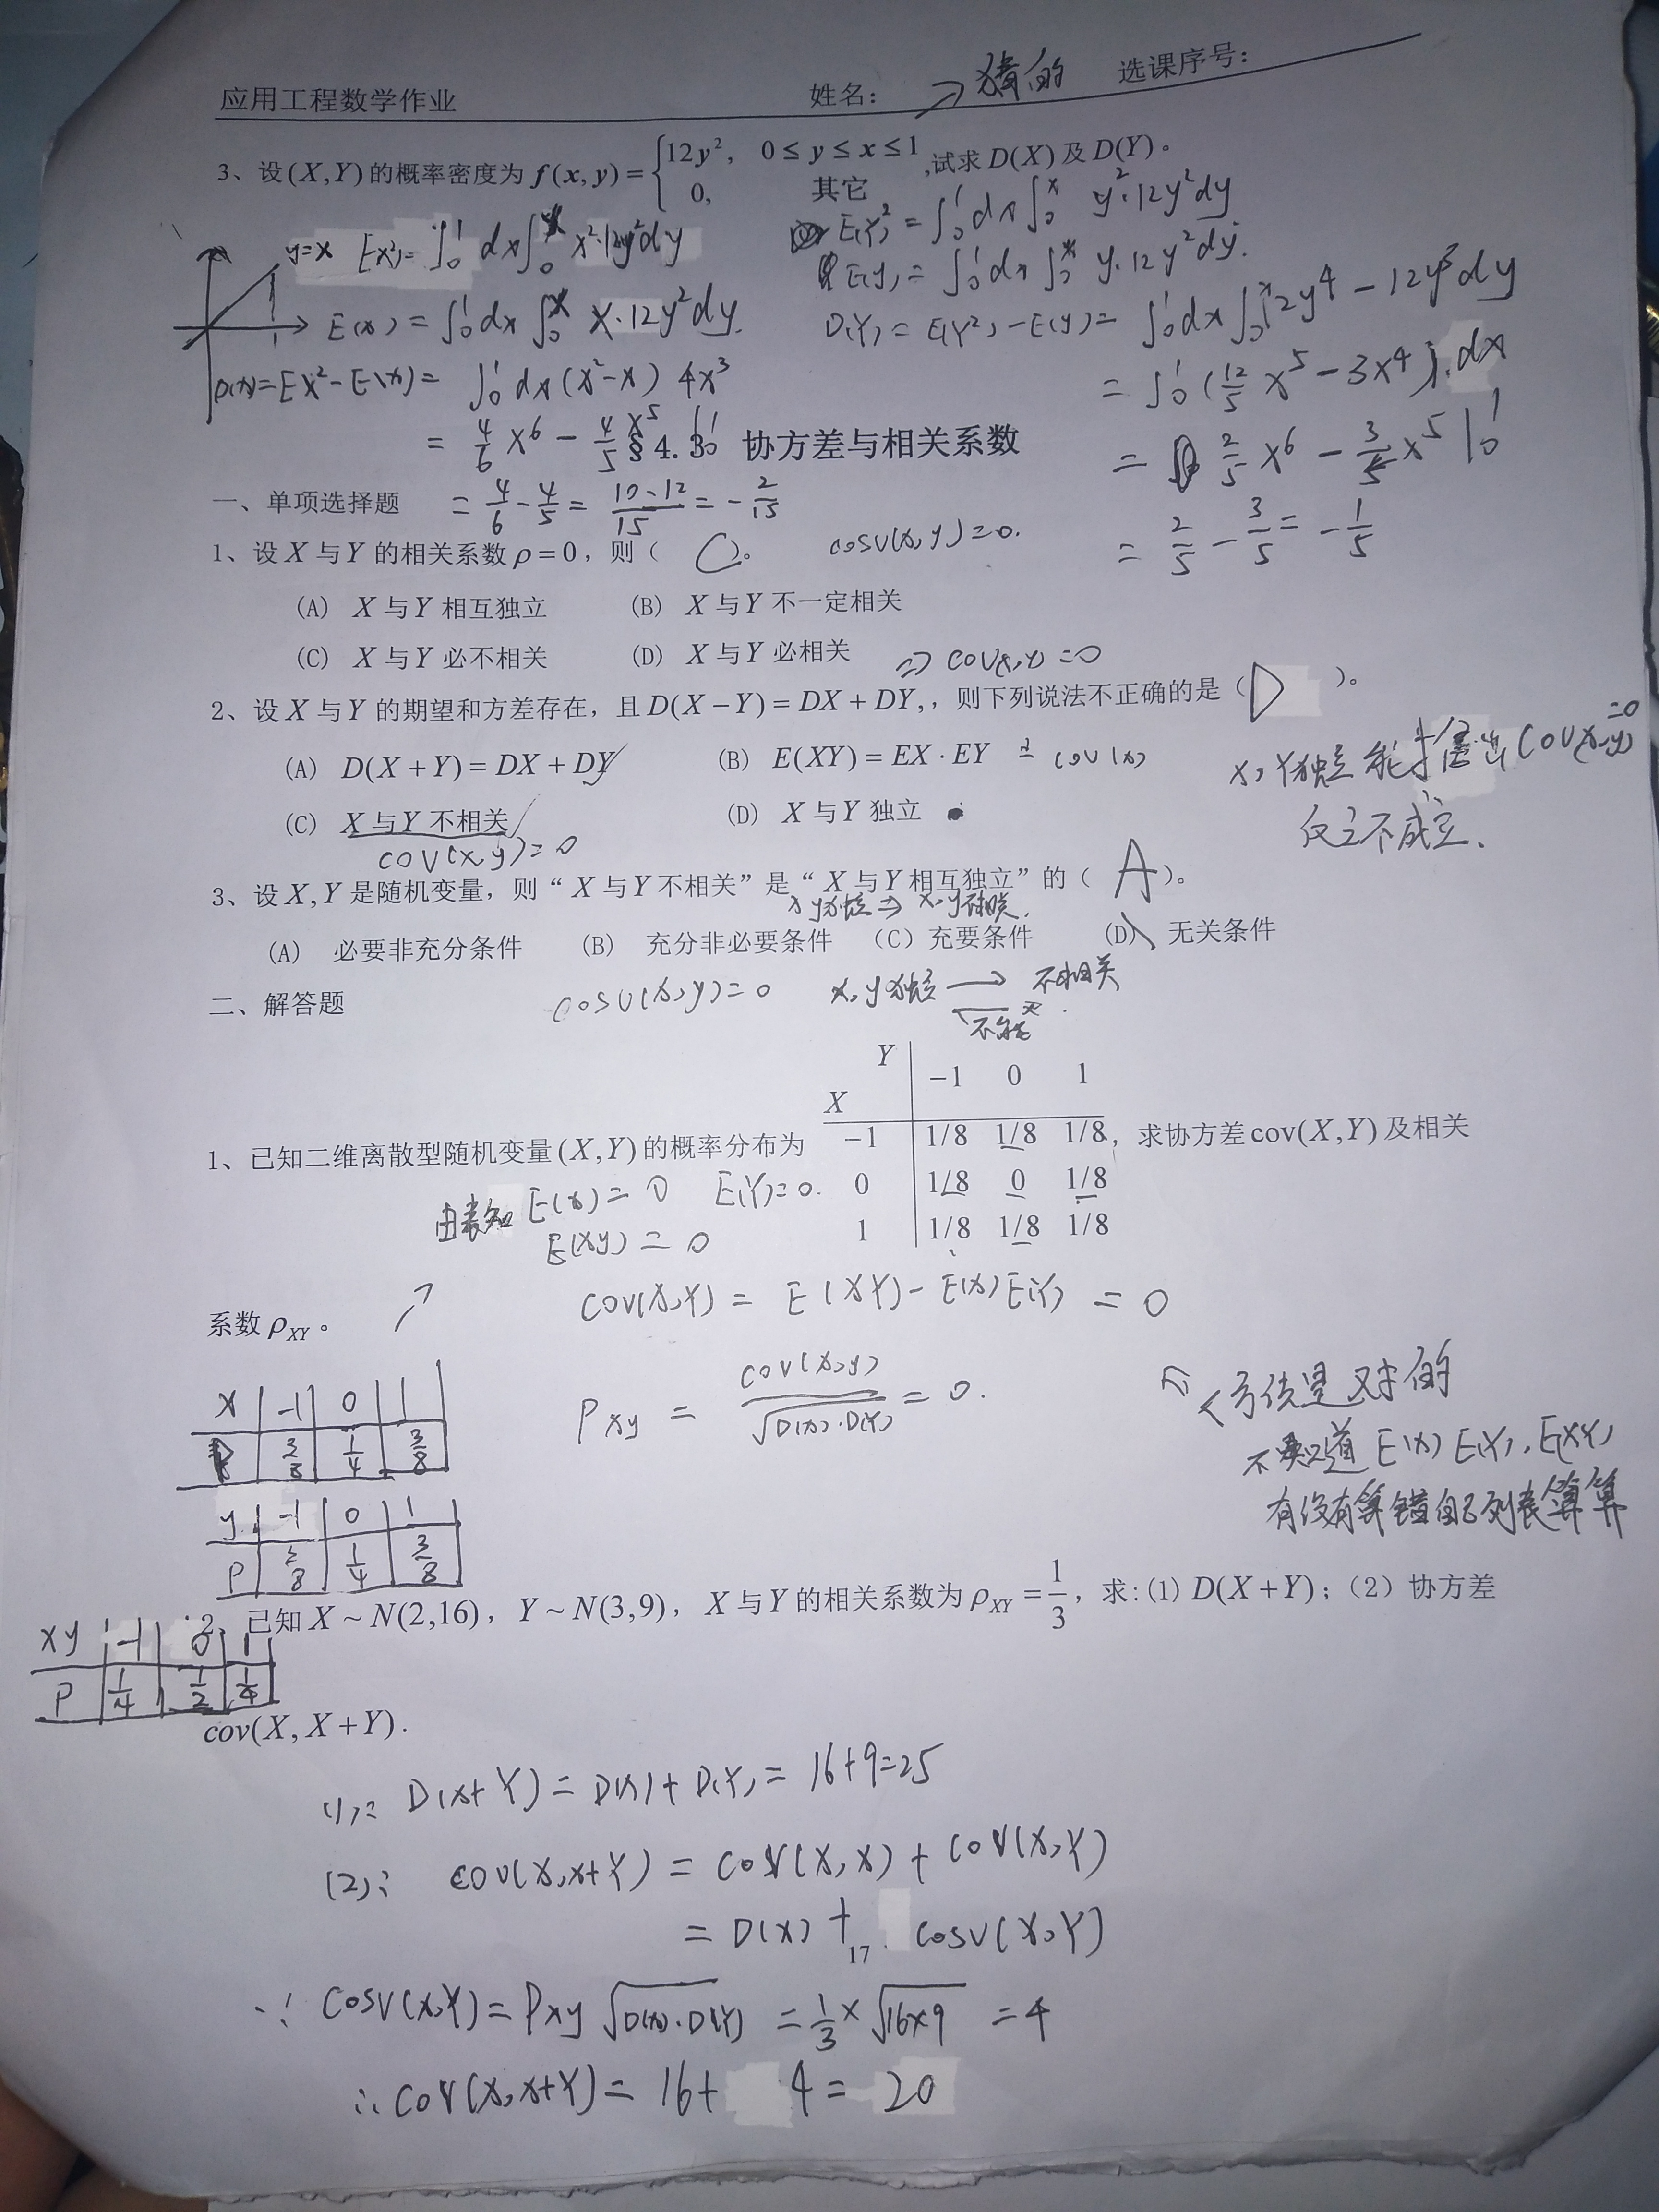 应用工程数学作业 姓名： →猪的 选课序号：
3、设(X,Y)的概率密度为f(x,y)={12y², 0≤y≤x≤1
0, 其它 ,试求D(X)及D(Y)。
y=x E(x²)=∫₀¹dx∫₀ˣ x²·12y²dy
E(x)=∫₀¹dx∫₀ˣ x·12y²dy.
D(x)=EX²-E(x)=∫₀¹dx(x²-x)4x³
=4/6 x⁶-4/5 x⁵|₀¹
=4/6-4/5=10-12/15=-2/15
E(Y²)=∫₀¹dx∫₀ˣ y²·12y²dy
E(y)=∫₀¹dx∫₀ˣ y·12y²dy.
D(Y)=E(Y²)-E(y)=∫₀¹dx∫₀ˣ12y⁴-12y³dy
=∫₀¹(12/5 x⁵-3x⁴)dx
=2/5 x⁶-3/5 x⁵|₀¹
=2/5-3/5=-1/5
§4.3 协方差与相关系数
一、单项选择题
1、设X与Y的相关系数ρ=0，则（ C ）。 cosv(x,y)=0.
(A) X与Y相互独立 (B) X与Y不一定相关
(C) X与Y必不相关 (D) X与Y必相关 => cov(x,y)=0
2、设X与Y的期望和方差存在，且D(X-Y)=DX+DY,，则下列说法不正确的是（ D ）。
(A) D(X+Y)=DX+DY (B) E(XY)=EX·EY cov(x)
(C) X与Y不相关 (D) X与Y独立
cov(x,y)=0
x,Y独立能推出cov(x,y)=0
反之不成立.
3、设X,Y是随机变量，则“X与Y不相关”是“X与Y相互独立”的（ A ）。
x y独立=>x,y不相关.
(A) 必要非充分条件 (B) 充分非必要条件 (C)充要条件 (D) 无关条件
二、解答题 cosv(x,y)=0 x,y独立→不相关
不能
1、已知二维离散型随机变量(X,Y)的概率分布为
Y
-1 0 1
X
-1 1/8 1/8 1/8
0 1/8 0 1/8
1 1/8 1/8 1/8
，求协方差cov(X,Y)及相关
系数ρXY。
由表知 E(x)=0 E(Y)=0.
E(xy)=0
cov(X,Y)=E(XY)-E(X)E(Y)=0
ρxy=cov(x,y)/√D(x)·D(Y)=0.
方法是对的
不知道E(x) E(Y),E(XY)
有没有算错自己列表算算
x -1 0 1
P 3/8 1/4 3/8
y -1 0 1
P 3/8 1/4 3/8
xy -1 0 1
P 1/4 1/2 1/4
2、已知X~N(2,16)，Y~N(3,9)，X与Y的相关系数为ρXY=1/3，求:(1)D(X+Y)；(2)协方差
cov(X,X+Y).
(1): D(x+Y)=D(x)+D(Y)=16+9=25
(2): cov(x,x+Y)=cov(x,x)+cov(x,Y)
=D(x)+cosv(x,Y)
17
∵cosv(x,Y)=ρxy√D(x)·D(Y)=1/3×√16×9=4
∴cov(x,x+Y)=16+4=20